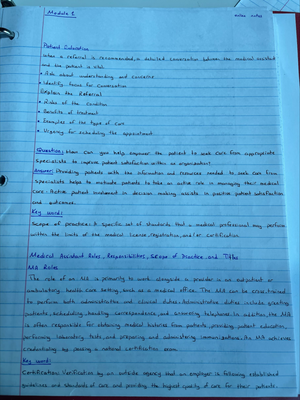 Module 1
Patient Education
When a referral is recommended, a detailed conversation between the medical assistant
and the patient is vital.
• Ask about understanding and concerns
• Identify focus for conversation
Explain the Referral
• Risks of the condition
• Benefits of treatment
• Examples of the type of care
• Urgency for scheduling the appointment
Question: How can you help empower the patient to seek care from appropriate
specialists to improve patient satisfaction within an organization?
Answer: Providing patients with the information and resources needed to seek care from
specialists helps to motivate patients to take an active role in managing their medical
care. Active patient involvement in decision making assists in positive patient satisfaction
and outcomes.
Key word:
Scope of practice: A specific set of standards that a medical professional may perform
within the limits of the medical license, registration, and/or certification.
Medical Assistant Roles, Responsibilities, Scope of Practice, and Titles
MA Roles
The role of an MA is primarily to work alongside a provider in an outpatient or
ambulatory health care setting, such as a medical office. The MA can be cross-trained
to perform both administrative and clinical duties. Administrative duties include greeting
patients, scheduling, handling correspondence, and answering telephones. In addition, the MA
is often responsible for obtaining medical histories from patients, providing patient education,
performing laboratory tests, and preparing and administering immunizations. The MA achieves
credentialing by passing a national certification exam.
Key word:
Certification: Verification by an outside agency that an employer is following established
guidelines and standards of care and providing the highest quality of care for their patients.